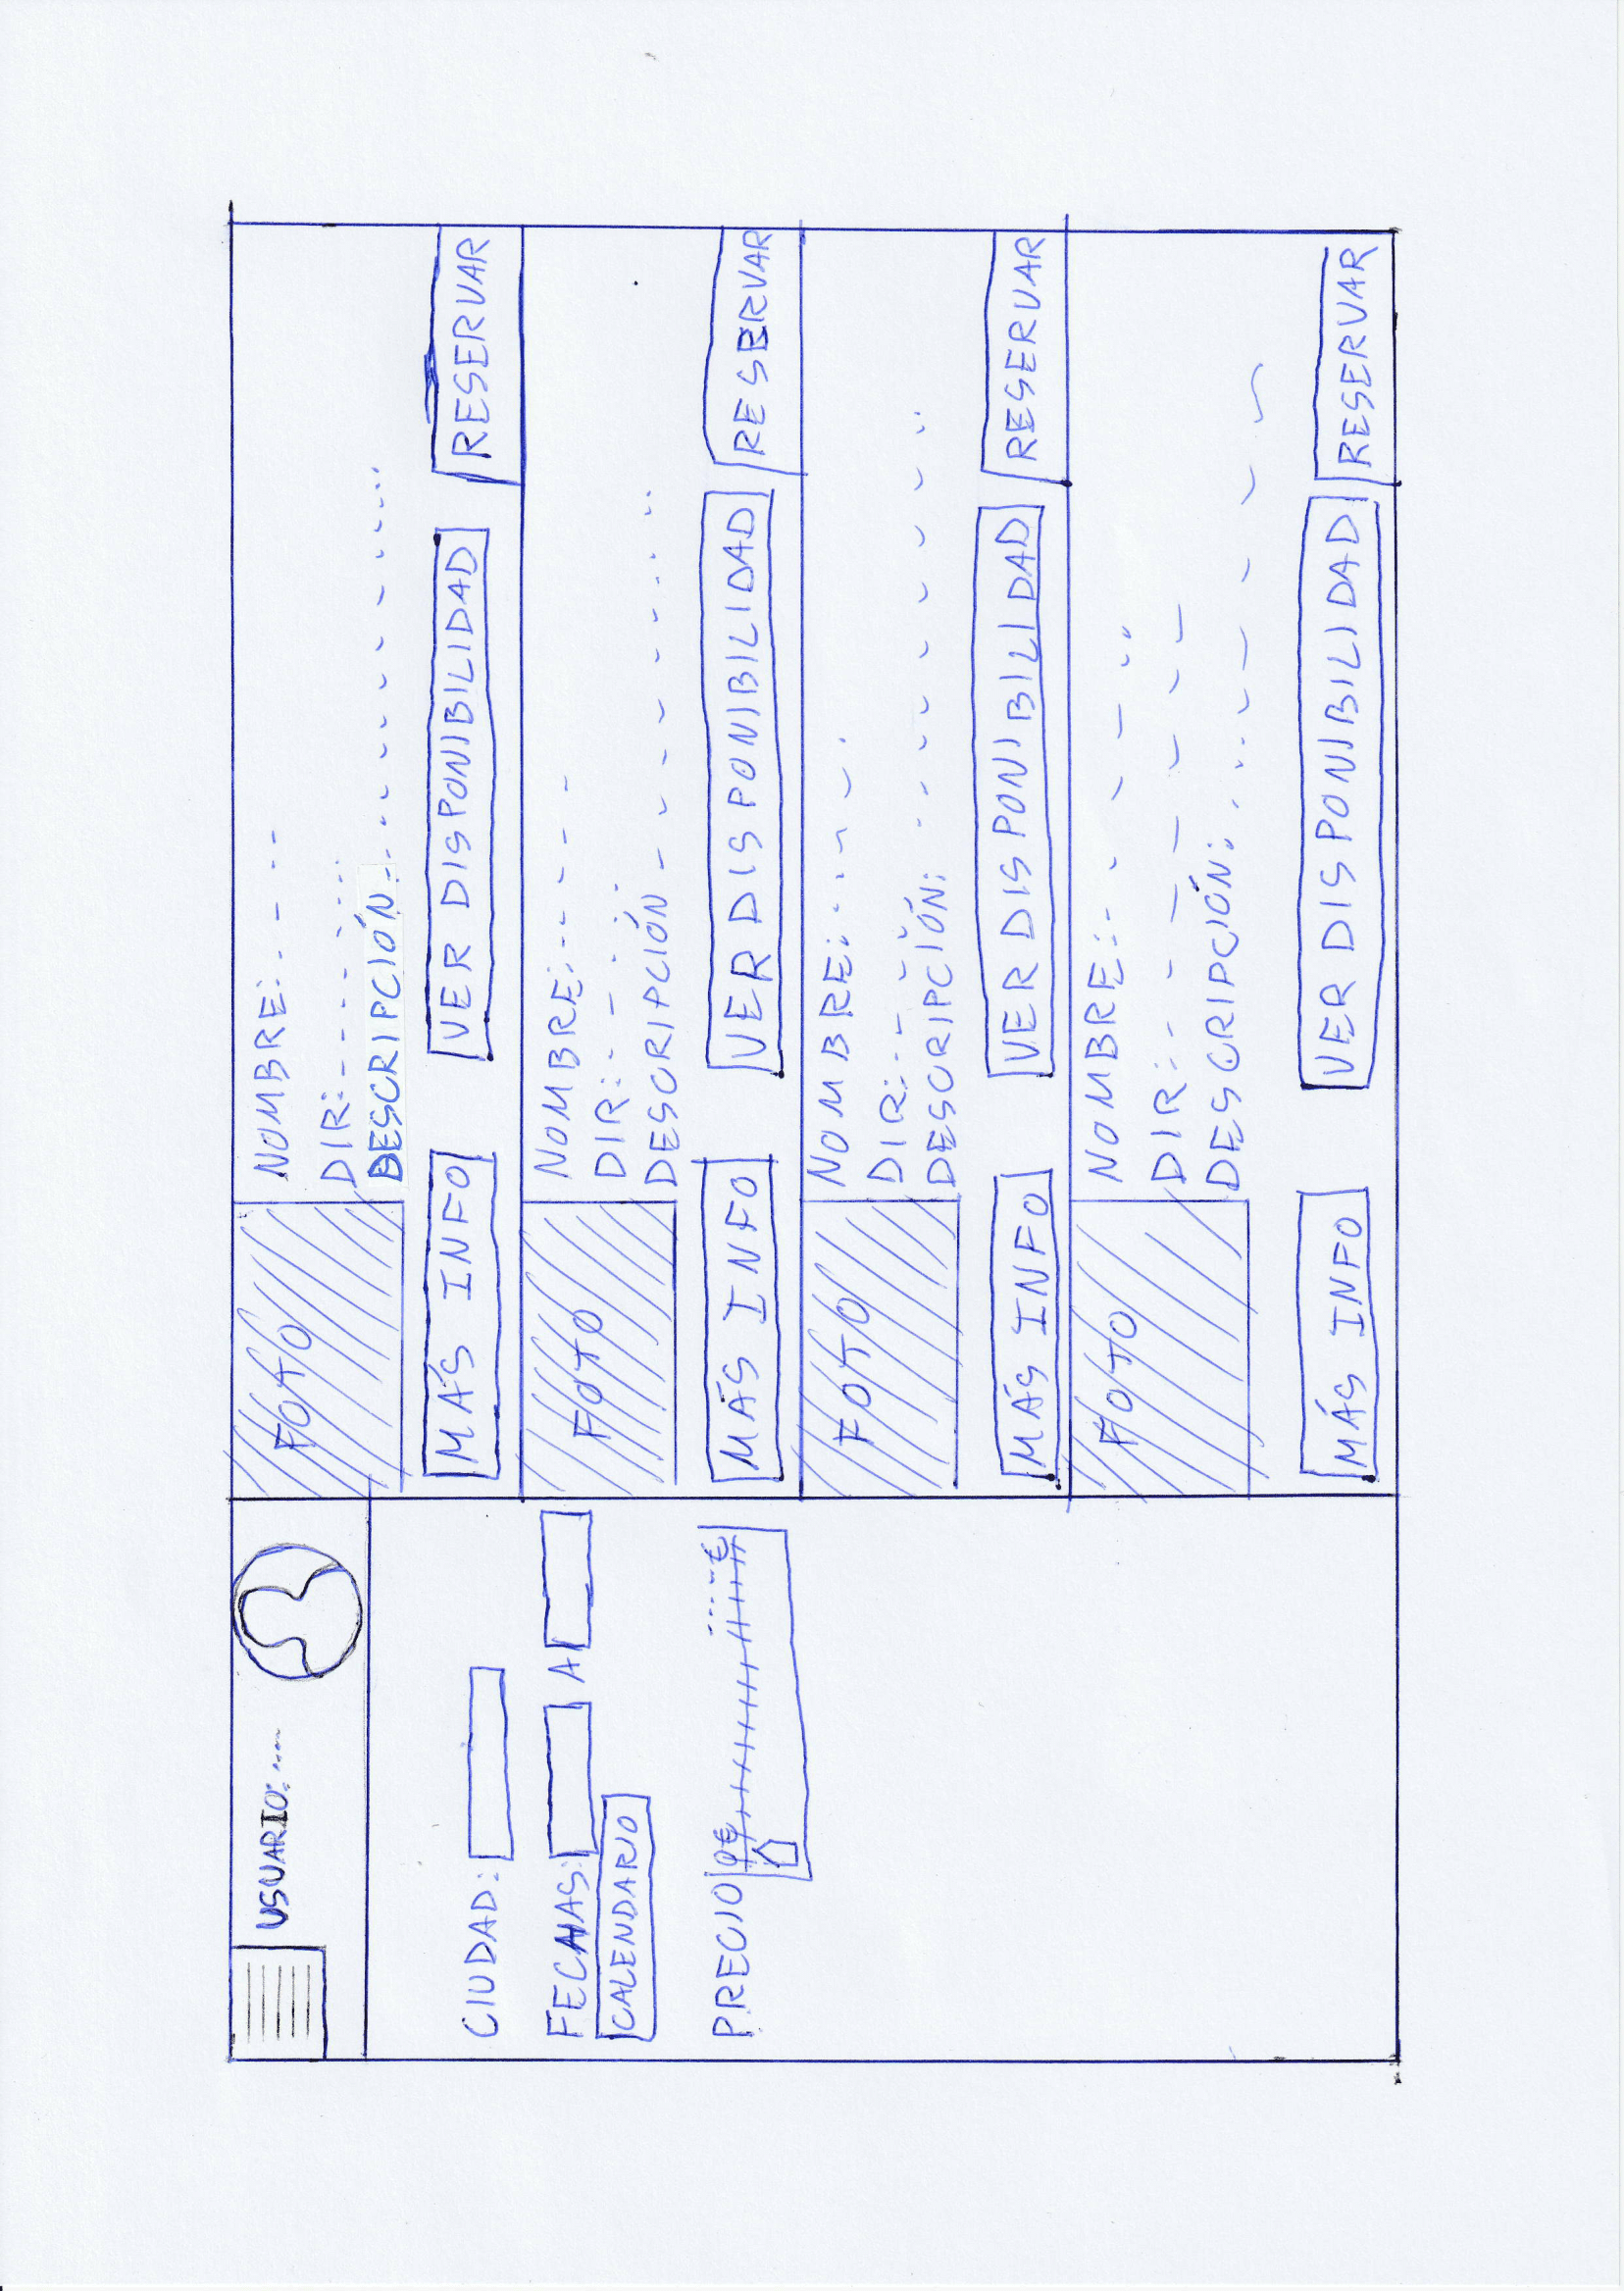 USUARIO:....
CIUDAD:
FECHAS: A
CALENDARIO
PRECIO 0€ ....€
FOTO
NOMBRE:
DIR:
DESCRIPCIÓN
MÁS INFO
VER DISPONIBILIDAD
RESERVAR
FOTO
NOMBRE:
DIR:
DESCRIPCIÓN
MÁS INFO
VER DISPONIBILIDAD
RESERVAR
FOTO
NOMBRE:
DIR:
DESCRIPCIÓN:
MÁS INFO
VER DISPONIBILIDAD
RESERVAR
FOTO
NOMBRE:
DIR:
DESCRIPCIÓN:
MÁS INFO
VER DISPONIBILIDAD
RESERVAR